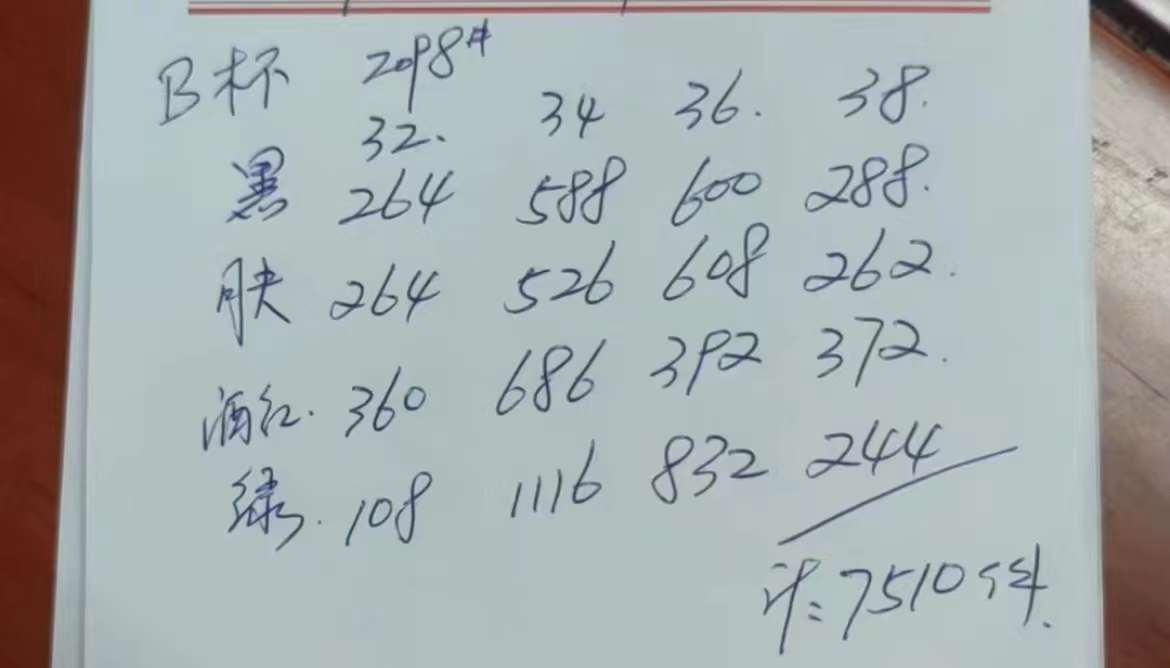 B杯 2098#
32. 34 36. 38.
黑 264 588 600 288.
肤 264 526 608 262.
酒红. 360 686 392 372.
绿. 108 1116 832 244
计:7510件.